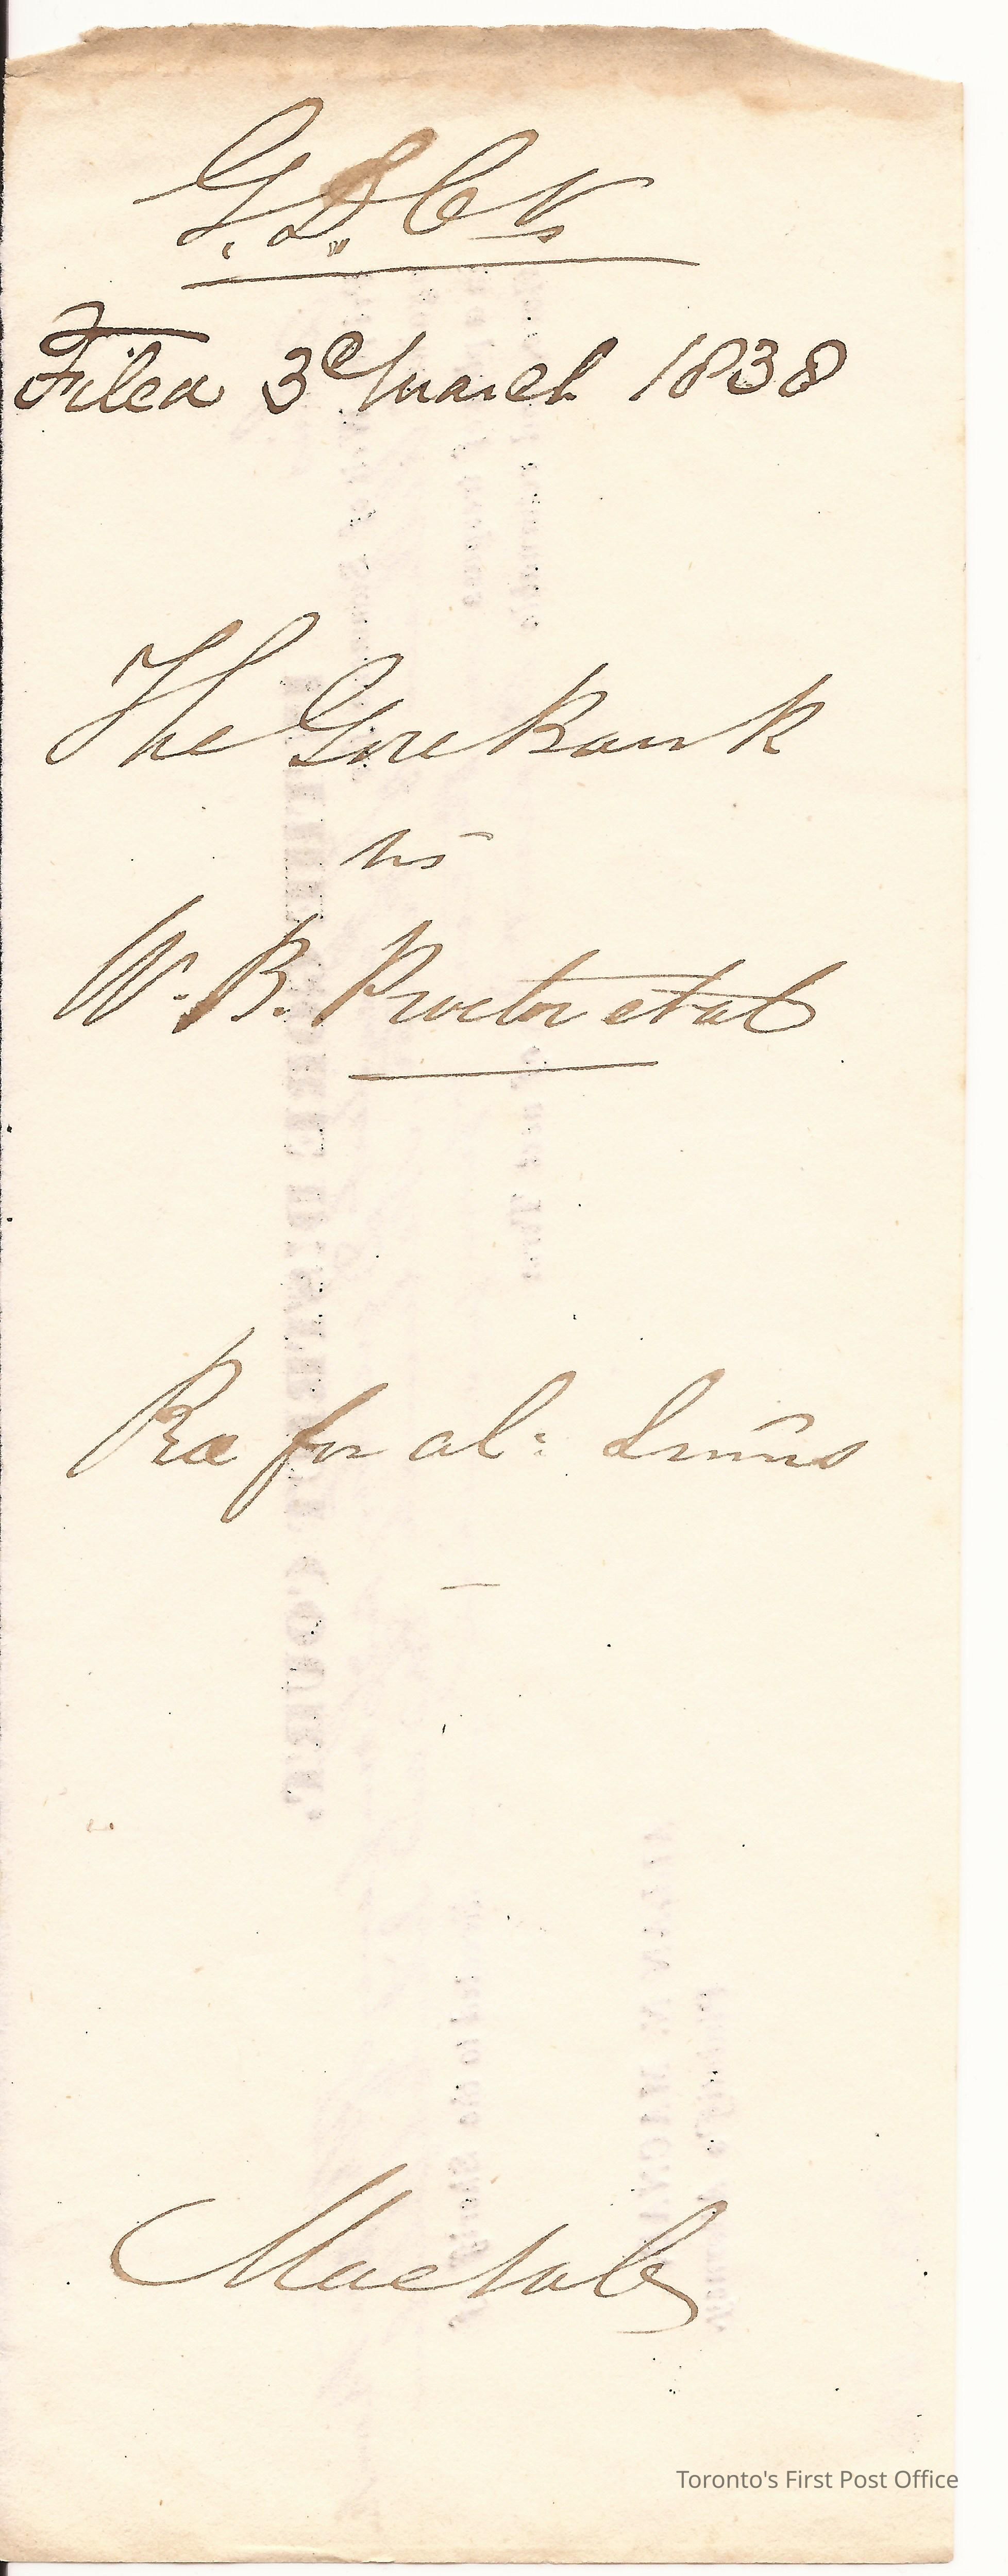 G. D. Ct
Filed 3d March 1838
The Gore Bank
vs
W. B. Proctor et al
Præ for al: Sum̄s
Toronto's First Post Office